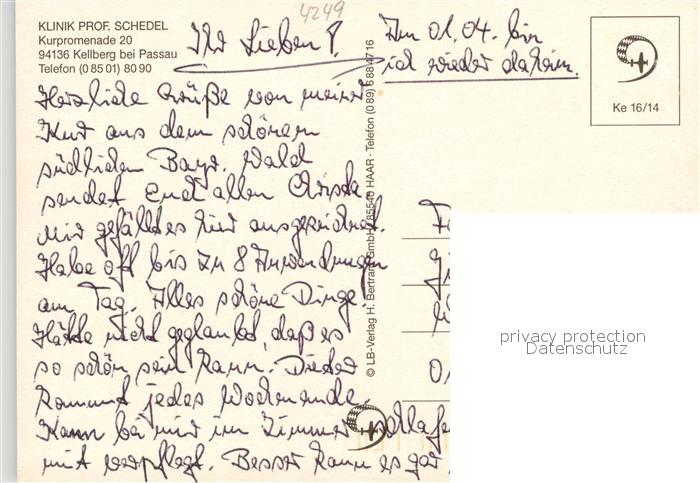 4249
KLINIK PROF. SCHEDEL
Kurpromenade 20
94136 Kellberg bei Passau
Telefon (0 85 01) 80 90
Ihr Lieben!
Am 01.04. bin
ich wieder daheim.
Ke 16/14
Herzliche Grüße von meiner
Kur aus dem schönen
südlichen Bayr. Wald
sendet Euch allen Christa.
Mir gefällt es hier ausgezeichnet.
Habe oft bis zu 8 Anwendungen
am Tag. Alles schöne Dinge!
Hätte nicht geglaubt, daß es
so schön sein kann. Dieter
kommt jedes Wochenende.
Kann bei mir im Zimmer schlafen
mit verpflegt. Besser kann es gar
© LB-Verlag H. Bertram GmbH · 85540 HAAR · Telefon (0 89) 6884716
privacy protection
Datenschutz